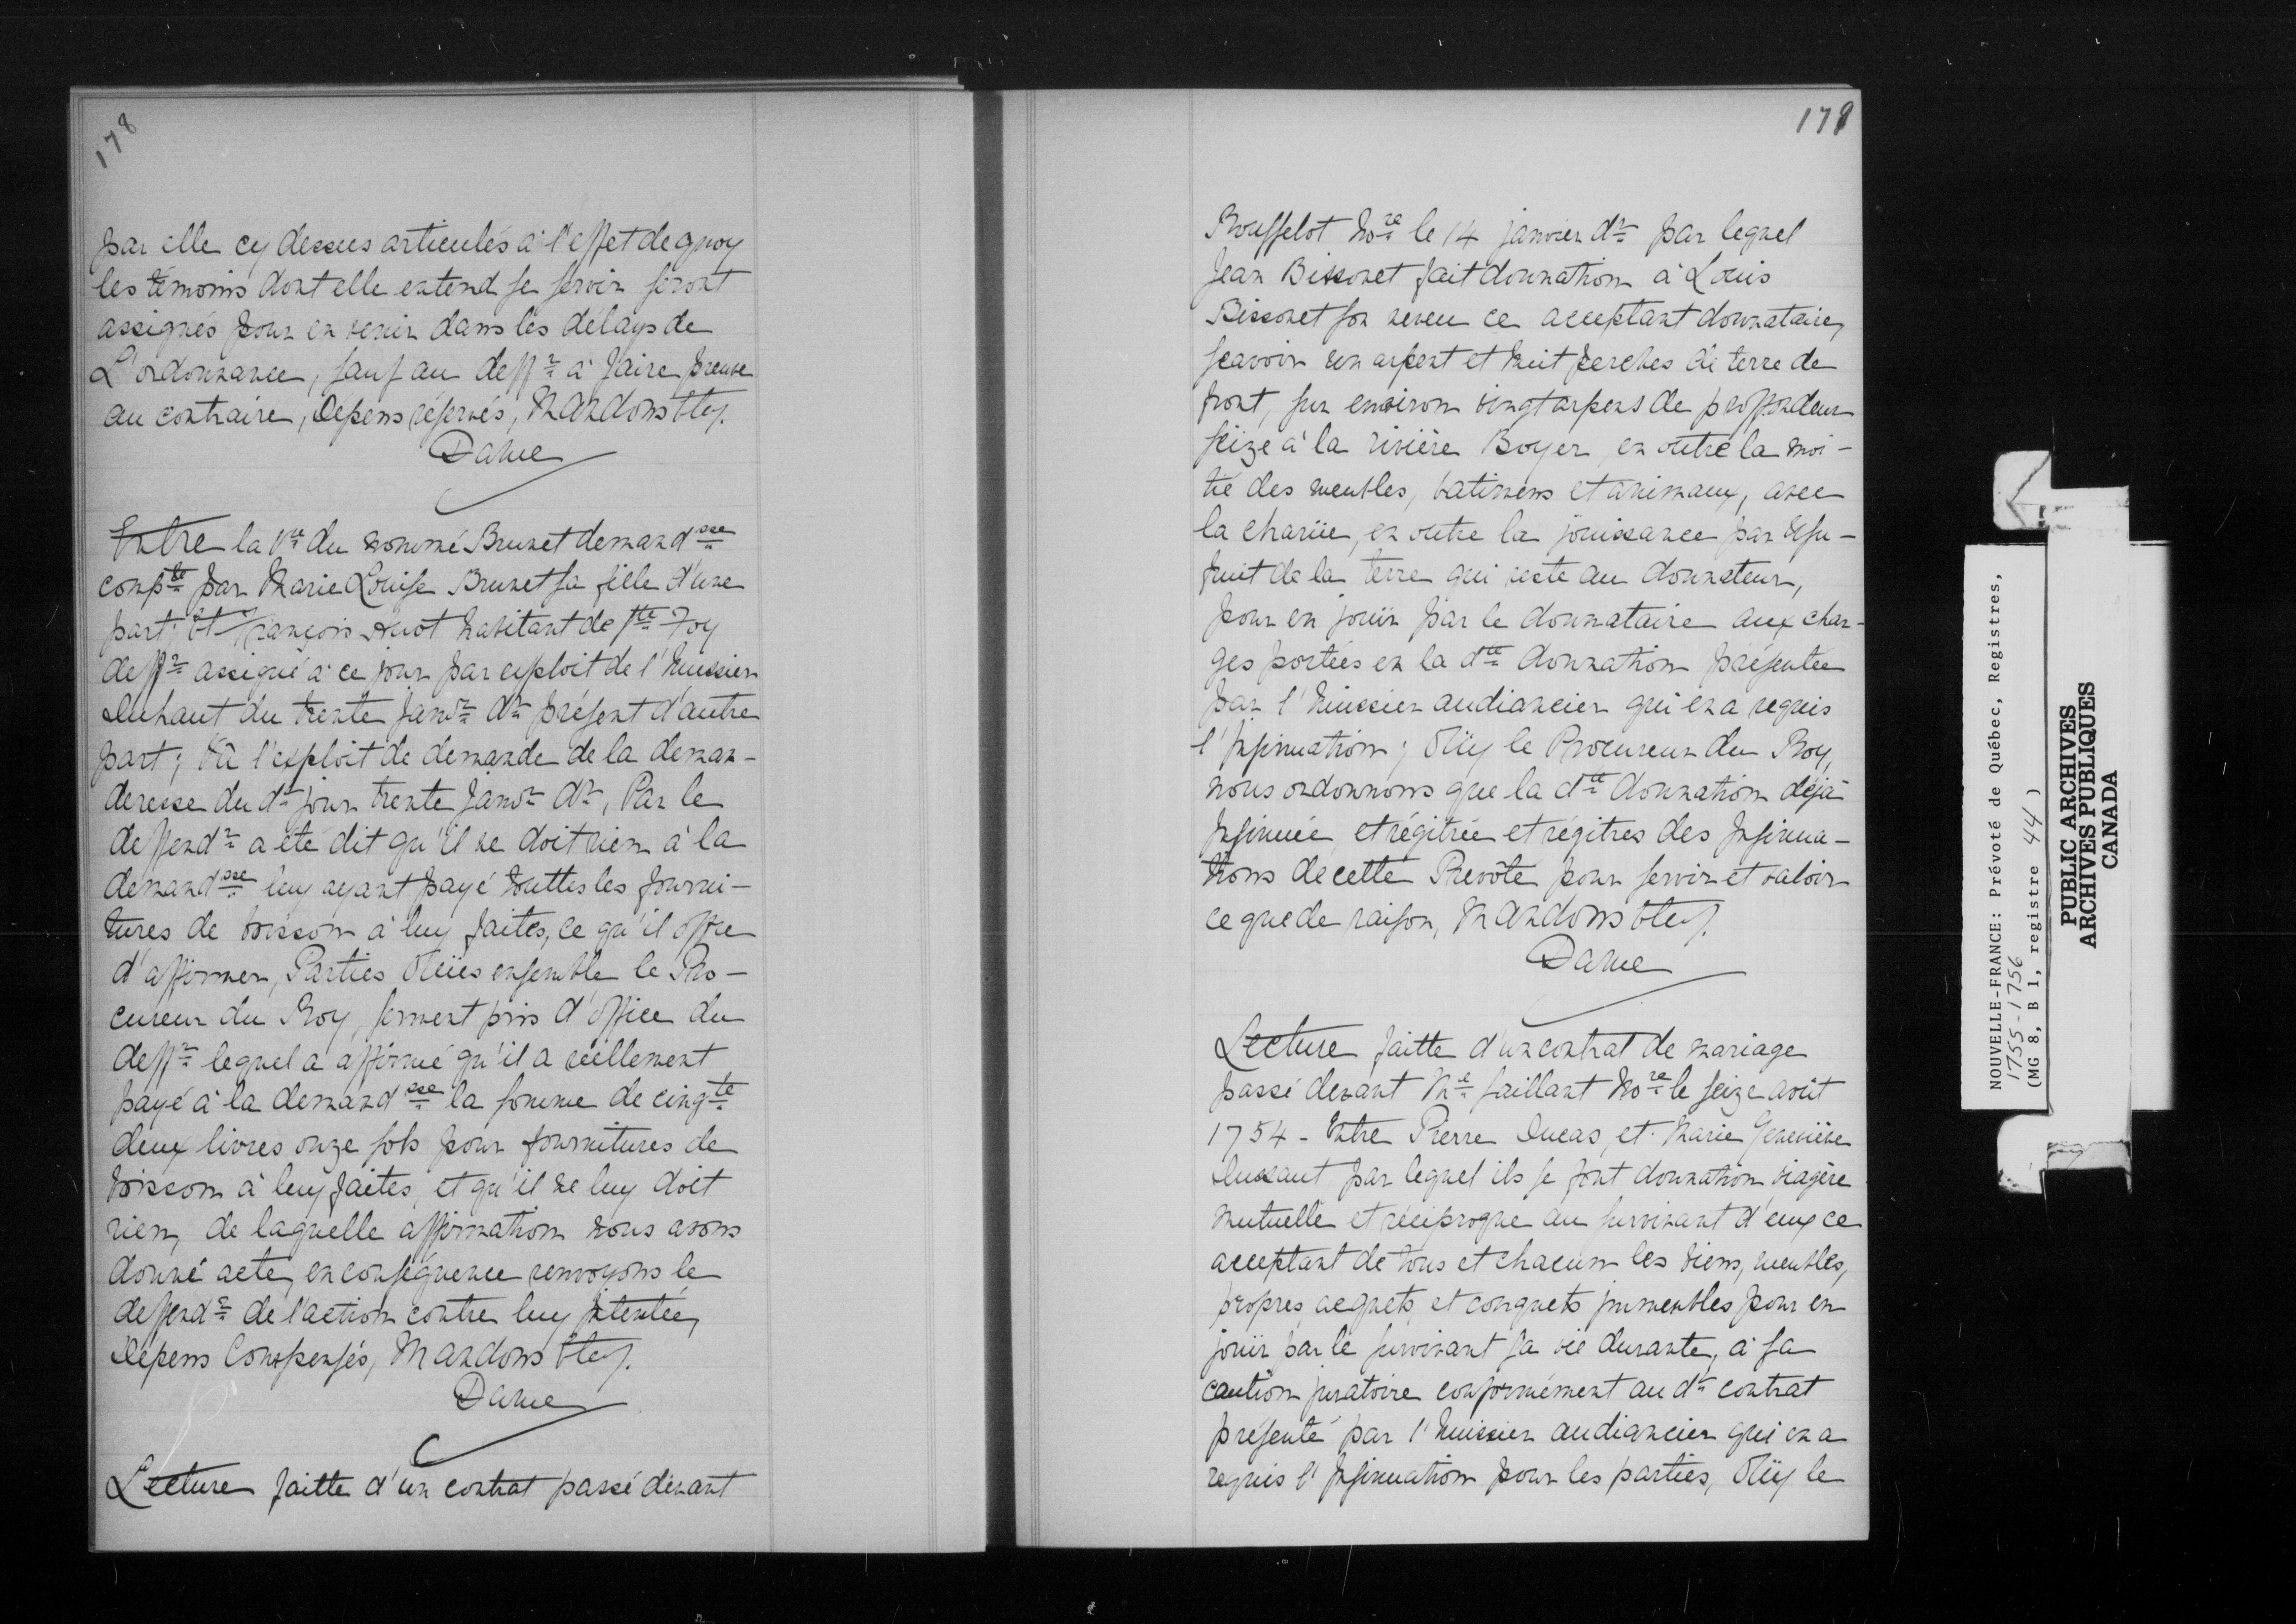 178
par elle cy dessus articulés à l'effet de quoy
les témoins dont elle entend se servir seront
assignés pour en venir dans les délays de
L'ordonnance, sauf au deffr à faire preuve
au contraire, Depens réservés, Mandons &tcy.
Daine
Entre la Ve du nommé Brunet demandsse
compte par Marie Louise Brunet sa fille d'une
part; Et François Huot habitant de Ste Foy
deffr assigné à ce jour par exploit de l'huissier
Duhaut du trente janvr dr présent d'autre
part; Vû l'exploit de demande de la deman-
deresse du dt jour trente janvr dr, Par le
deffendr a été dit qu'il ne doit rien à la
demandsse luy ayant payé touttes les fourni-
tures de boisson à luy faites, ce qu'il offre
d'affirmer, Parties Oüies ensemble le Pro-
cureur du Roy, serment pris d'office du
deffr lequel a affirmé qu'il a réellement
payé à la demandsse la somme de cinqte
deux livres onze sols pour fournitures de
boisson à luy faites, et qu'il ne luy doit
rien, de laquelle affirmation nous avons
donné acte, en conséquence renvoyons le
deffendr de l'action contre luy Intentée,
Dépens Compensés, Mandons &tcy.
Daine
Lecture faitte d'un contrat passé devant
179
Rousselot Nore le 14 janvier dr par lequel
Jean Bissonet fait donnation à Louis
Bissonet son neveu ce acceptant donnataire,
sçavoir un arpent et huit perches de terre de
front, sur environ vingt arpens de proffondeur
seize à la rivière Boyer, en outre la moi-
tié des meubles, batimens et animaux, avec
la charüe, en outre la jouissance par Usu-
fruit de la terre qui reste au donnateur,
pour en jouir par le donnataire aux char-
ges portées en la dte donnation présentée
par l'huissier audiancier qui en a requis
l'Insinuation; Oüy le Procureur du Roy,
nous ordonnons que la dte donnation déjà
Insinuée, et régitrée et régitres des Insinua-
tions de cette Prevôté pour servir et valoir
ce que de raison, Mandons &tcy.
Daine
Lecture faitte d'un contrat de mariage
passé devant Me Saillant Nore le seize août
1754 - Entre Pierre Ducas, et Marie Geneviève
Dussaut par lequel ils se font donnation viagère
mutuelle et réciproque au survivant d'eux ce
acceptant de tous et chacun les biens, meubles,
propres, acquets et conquets immeubles pour en
jouir par le survivant sa vie durante, à sa
caution juratoire conformément au dt contrat
présenté par l'huissier audiancier qui en a
requis l'Insinuation pour les parties, Oüy le
NOUVELLE-FRANCE: Prévoté de Québec, Registres,
1755-1756
(MG 8, B 1, registre 44)
PUBLIC ARCHIVES
ARCHIVES PUBLIQUES
CANADA